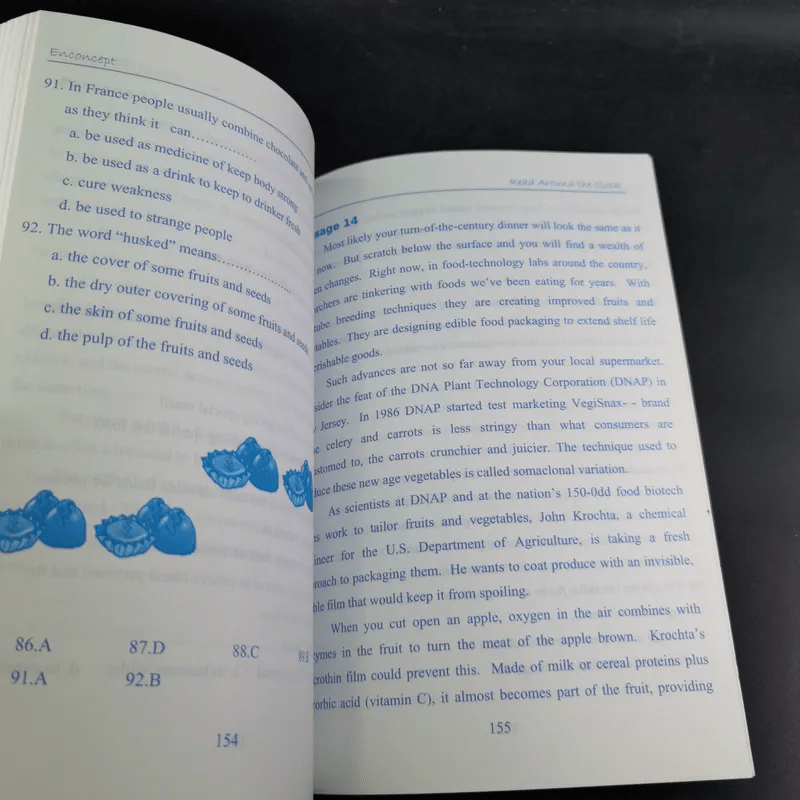 Enconcept
91. In France people usually combine chocolate and
as they think it can...............
a. be used as medicine of keep body strong
b. be used as a drink to keep to drinker fresh
c. cure weakness
d. be used to strange people
92. The word “husked” means...............
a. the cover of some fruits and seeds
b. the dry outer covering of some fruits and seeds
c. the skin of some fruits and seeds
d. the pulp of the fruits and seeds
86.A 87.D 88.C
91.A 92.B
154
Read Around the Clock
sage 14
Most likely your turn-of-the-century dinner will look the same as it
now. But scratch below the surface and you will find a wealth of
en changes. Right now, in food-technology labs around the country,
rchers are tinkering with foods we’ve been eating for years. With
tube breeding techniques they are creating improved fruits and
tables. They are designing edible food packaging to extend shelf life
erishable goods.
Such advances are not so far away from your local supermarket.
sider the feat of the DNA Plant Technology Corporation (DNAP) in
Jersey. In 1986 DNAP started test marketing VegiSnax- - brand
e celery and carrots is less stringy than what consumers are
ustomed to, the carrots crunchier and juicier. The technique used to
duce these new age vegetables is called somaclonal variation.
As scientists at DNAP and at the nation’s 150-0dd food biotech
ns work to tailor fruits and vegetables, John Krochta, a chemical
ineer for the U.S. Department of Agriculture, is taking a fresh
roach to packaging them. He wants to coat produce with an invisible,
ble film that would keep it from spoiling.
When you cut open an apple, oxygen in the air combines with
zymes in the fruit to turn the meat of the apple brown. Krochta’s
crothin film could prevent this. Made of milk or cereal proteins plus
orbic acid (vitamin C), it almost becomes part of the fruit, providing
155